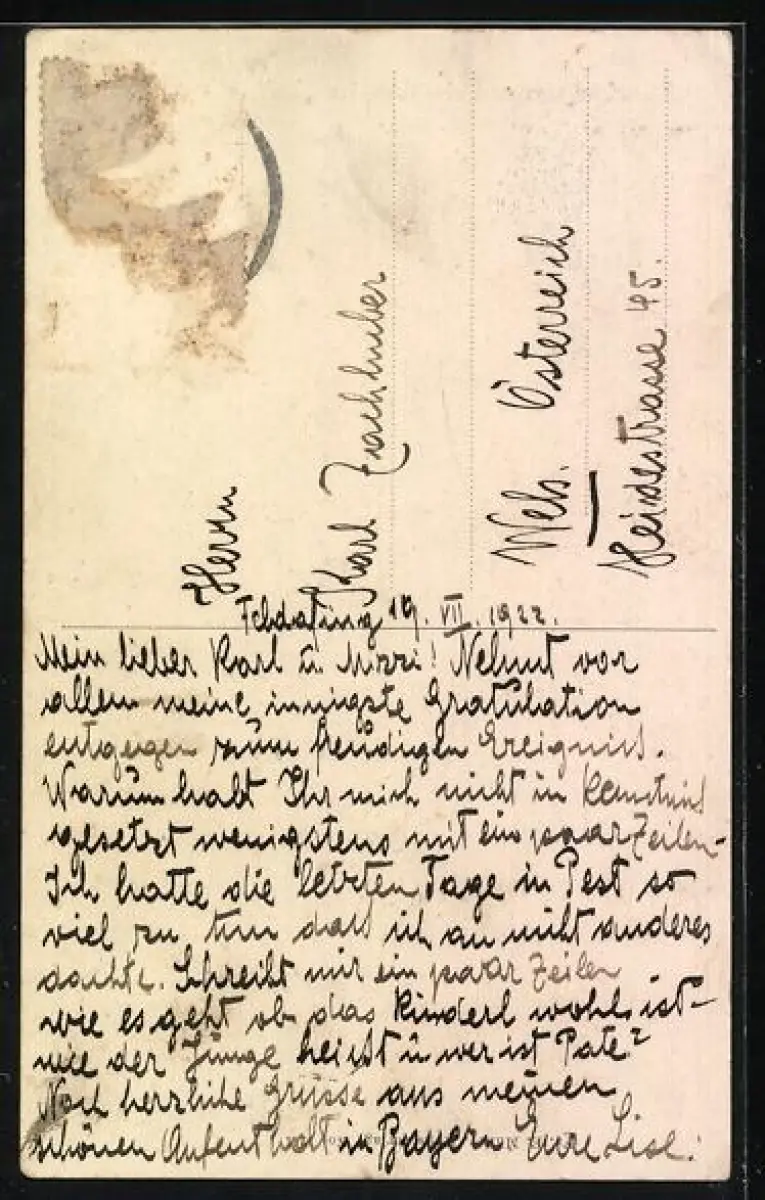 Herrn
Karl Zachhuber
Wels. Österreich
Heidestrasse 45.
Feldafing 19. VII. 1922.
Mein lieber Karl u. Mizzi! Nehmt vor
allem meine innigste Gratulation
entgegen zum freudigen Ereigniss.
Warum habt Ihr mich nicht in Kenntniss
gesetzt wenigstens mit ein paar Zeilen-
Ich hatte die letzten Tage in Pest so
viel zu tun dass ich an nicht anderes
dachte. Schreibt mir ein paar Zeilen
wie es geht ob das Kinderl wohl ist-
wie der Junge heisst u wer ist Pate?
Noch herzliche Grüsse aus meinen
schönen Aufenthalt in Bayern Eure Lisl.